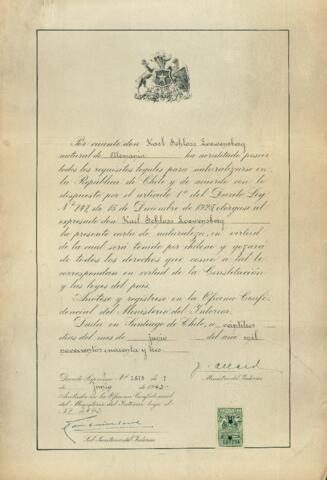 Por cuanto don Karl Schloss Loewensberg
natural de Alemania ha acreditado poseer
todos los requisitos legales para naturalizarse en
la República de Chile y de acuerdo con lo
dispuesto por el artículo 1º del Decreto Ley
Nº 747, de 15 de Diciembre de 1925, otórgase al
expresado don Karl Schloss Loewensberg
la presente carta de naturaleza, en virtud
de la cual será tenido por chileno y gozará
de todos los derechos que como a tal le
correspondan en virtud de la Constitución
y las leyes del país.
Anótese y regístrese en la Oficina Confi-
dencial del Ministerio del Interior.
Dada en Santiago de Chile, a
días del mes de junio del año mil
novecientos
Decreto Supremo Nº 2873 de 7
de junio de 194
Anotada en la Oficina Confidencial
del Ministerio del Interior bajo el
Nº
Ministro del Interior
Sub-Secretario del Interior